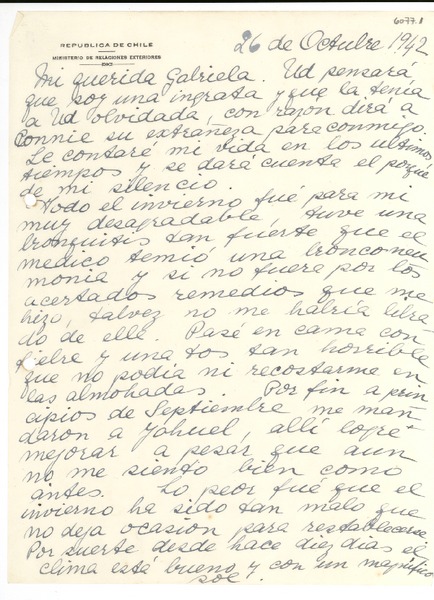 6077.1
REPUBLICA DE CHILE
MINISTERIO DE RELACIONES EXTERIORES
26 de Octubre 1942
Mi querida Gabriela. Ud pensará
que soy una ingrata y que la tenía
a Ud olvidada, con razon dirá a
Connie su extrañeza para conmigo.
Le contaré mi vida en los ultimos
tiempos y se dará cuenta el porqué
de mi silencio.
Todo el invierno fué para mi
muy desagradable, tuve una
bronquitis tan fuerte que el
medico temió una bronconeu
monia y si no fuera por los
acertados remedios que me
hizo, talvez no me habría libra
do de elle. Pasé en cama con
fiebre y una tos tan horrible
que no podia ni recostarme en
las almohadas. Por fin a prin
cipios de Septiembre me man
daron a Jahuel, allí logré
mejorar a pesar que aun
no me siento bien como
antes. Lo peor fué que el
invierno ha sido tan malo que
no deja ocasion para restablecerse.
Por suerte desde hace diez dias el
clima está bueno y con un magnífico
sol.